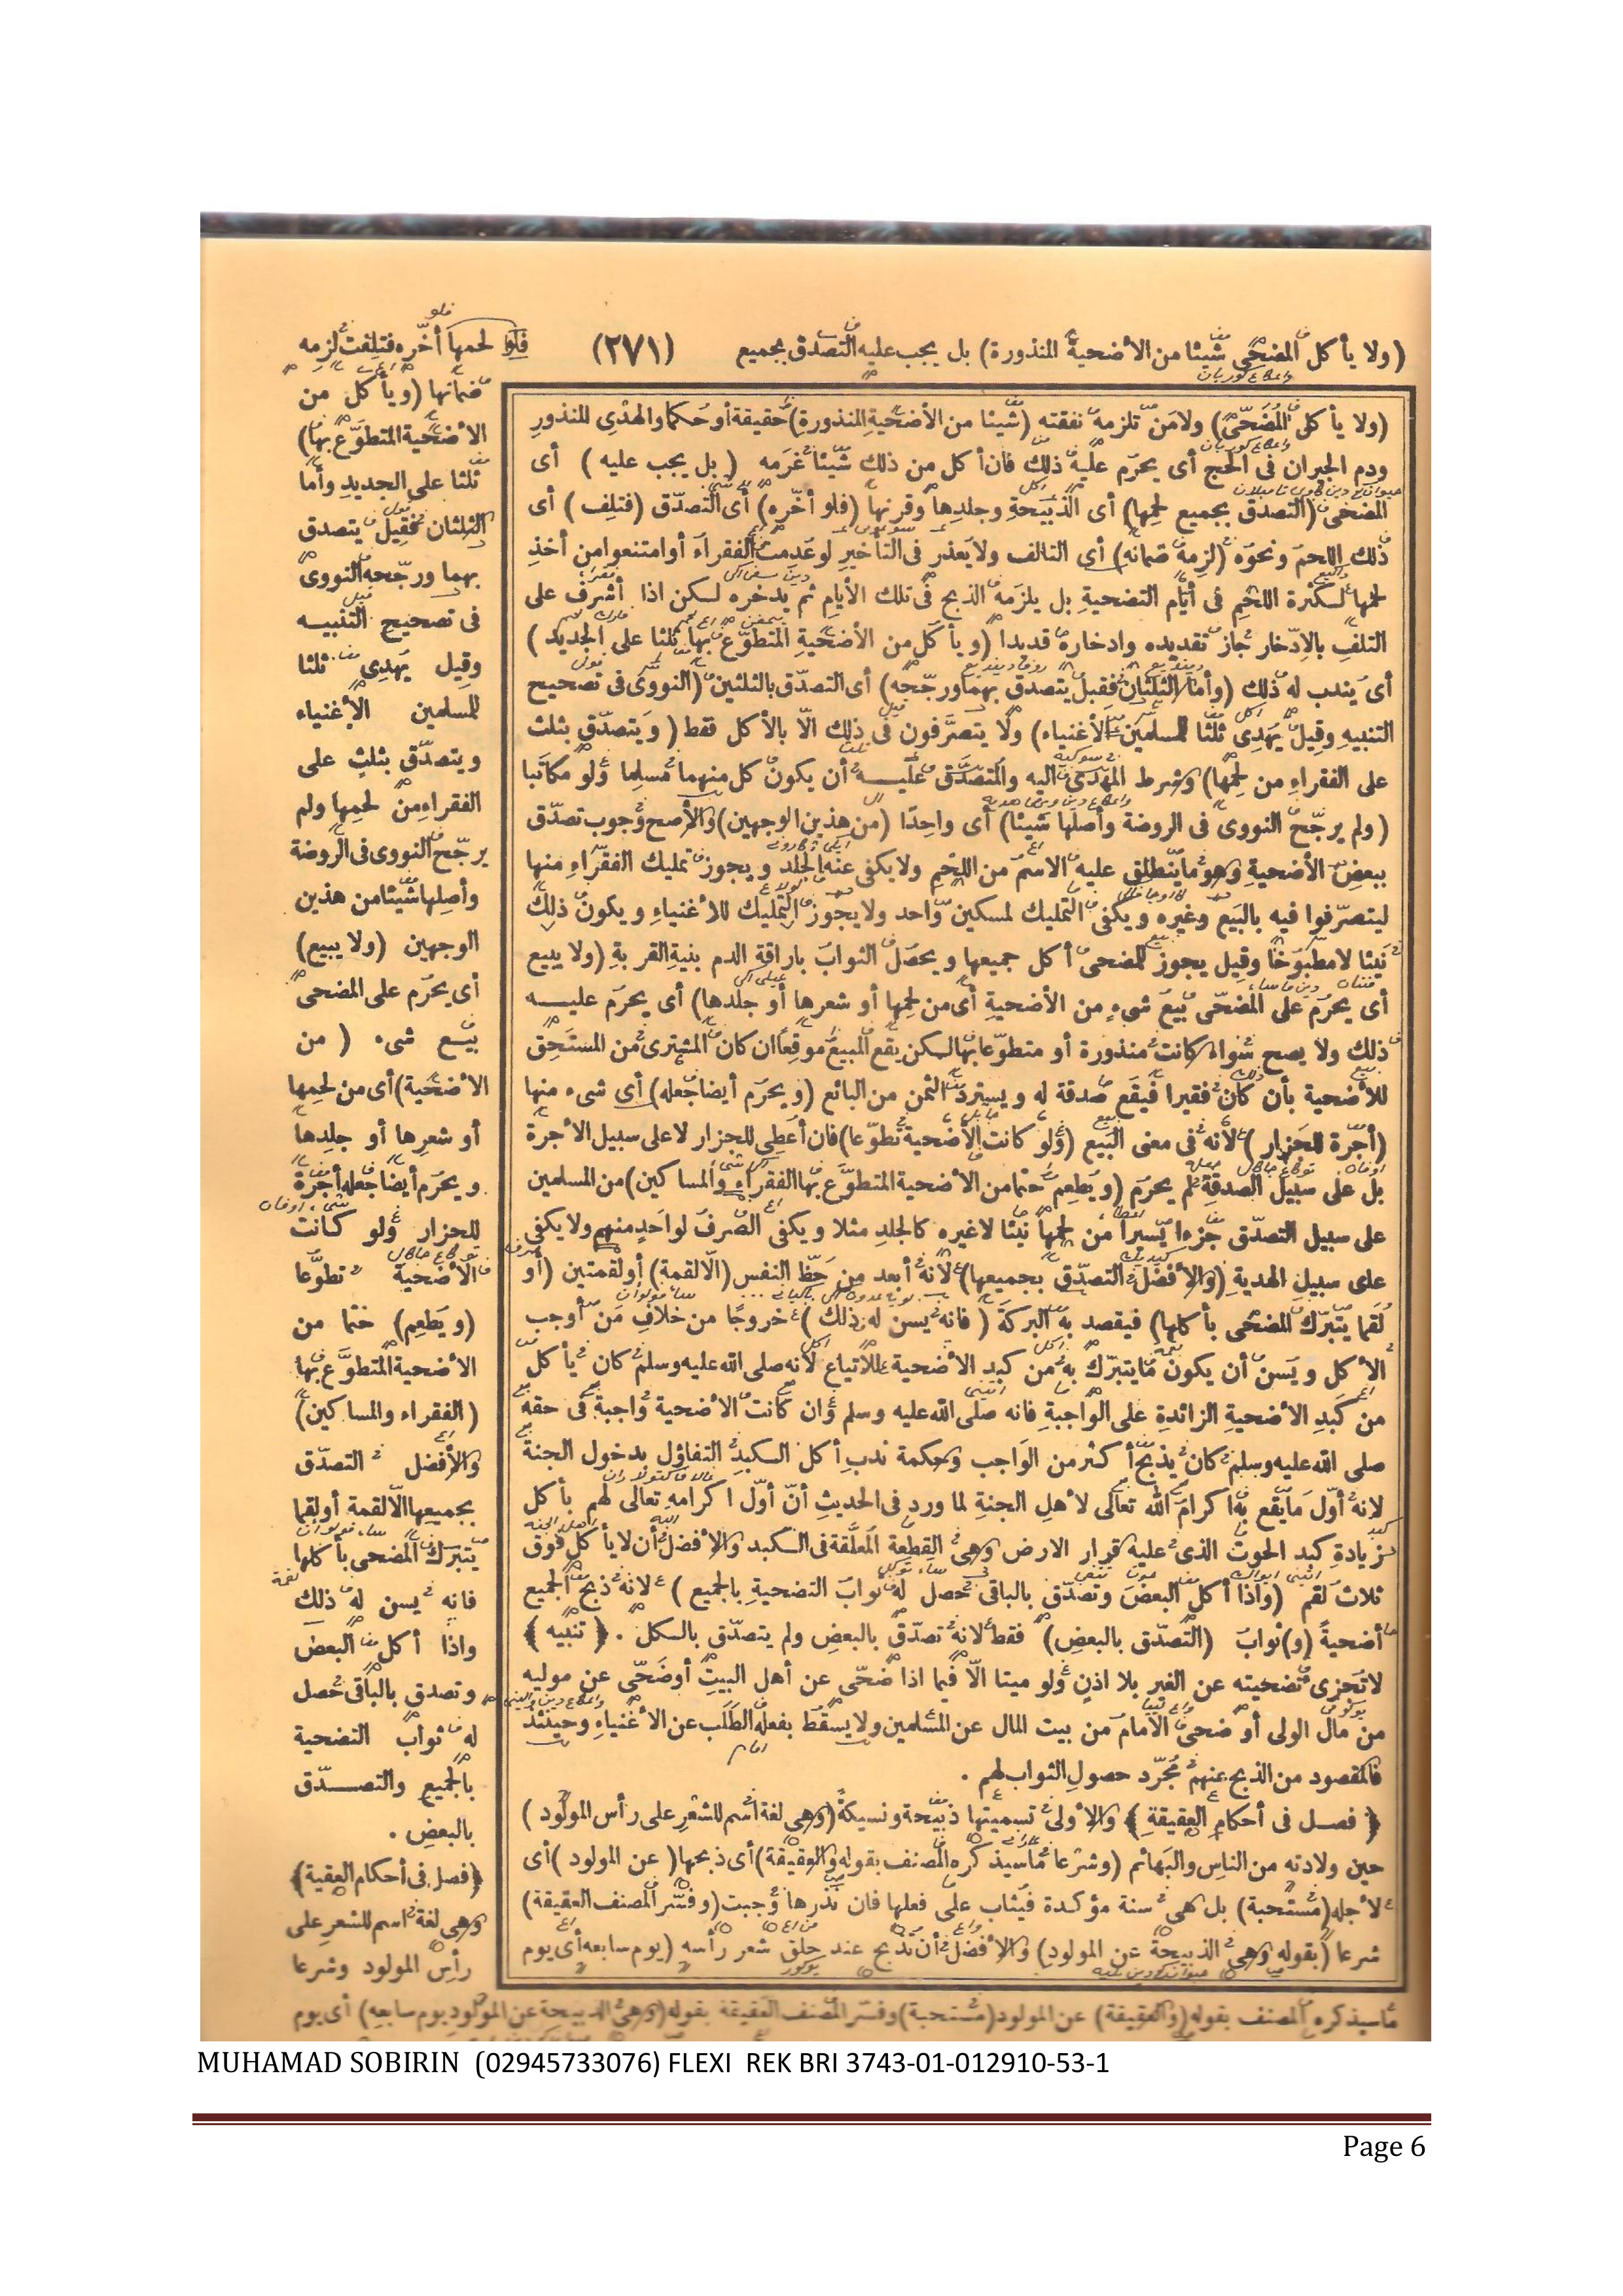 (ولا يأكل المضحى شيئا من الأضحية المنذورة) بل يجب عليه التصدق بجميع (٢٧١) لحمها فلو أخّره فتلفت لزمه
ضمانها (ويأكل من
الأضحية المتطوّع بها)
ثلثا على الجديد وأما
الثلثان فقيل يتصدق
بهما ورجّحه النووى
فى تصحيح التنبيه
وقيل يهدى ثلثا
للمسلمين الأغنياء
ويتصدّق بثلث على
الفقراء من لحمها ولم
يرجّح النووى فى الروضة
وأصلها شيئا من هذين
الوجهين (ولا يبيع)
أى يحرم على المضحى
بيع شىء (من
الأضحية) أى من لحمها
أو شعرها أو جلدها
ويحرم أيضا جعله أجرة
للجزار ولو كانت
الأضحية تطوّعا
(ويطعم) حتما من
الأضحية المتطوّع بها
(الفقراء والمساكين)
والأفضل التصدّق
بجميعها الّا لقمة أو لقما
يتبرّك المضحى بأكلها
فانه يسن له ذلك
واذا أكل البعض
وتصدق بالباقى حصل
له ثواب التضحية
بالجميع والتصدّق
بالبعض .
﴿فصل فى أحكام العقيقة﴾
وهى لغة اسم للشعر على
رأس المولود وشرعا
(ولا يأكل المضحّى) ولا من تلزمه نفقته (شيئا من الأضحية المنذورة) حقيقة أو حكما والهدى المنذور
ودم الجبران فى الحج أى يحرم عليه ذلك فان أكل من ذلك شيئا غرمه (بل يجب عليه) أى
المضحى (التصدق بجميع لحمها) أى الذبيحة وجلدها وقرنها (فلو أخّره) أى التصدّق (فتلف) أى
ذلك اللحم ونحوه (لزمه ضمانه) أى التالف ولا يعذر فى التأخير لو عدمت الفقراء أو امتنعوا من أخذ
لحمها لكثرة اللحم فى أيام التضحية بل يلزمه الذبح فى تلك الأيام ثم يدخره لكن اذا أشرف على
التلف بالادّخار جاز تقديده وادخاره قديدا (ويأكل من الأضحية المتطوّع بها ثلثا على الجديد)
أى يندب له ذلك (وأما الثلثان فقيل يتصدق بهما ورجّحه) أى التصدّق بالثلثين (النووى فى تصحيح
التنبيه وقيل يهدى ثلثا للمسلمين الأغنياء) ولا يتصرّفون فى ذلك الّا بالأكل فقط (ويتصدّق بثلث
على الفقراء من لحمها) وشرط المهدى اليه والمتصدّق عليه أن يكون كل منهما مسلما ولو مكاتبا
(ولم يرجّح النووى فى الروضة وأصلها شيئا) أى واحدا (من هذين الوجهين) والأصح وجوب تصدّق
ببعض الأضحية وهو ما ينطلق عليه الاسم من اللحم ولا يكفى عنه الجلد ويجوز تمليك الفقراء منها
ليتصرّفوا فيه بالبيع وغيره ويكفى التمليك لمسكين واحد ولا يجوز التمليك للأغنياء ويكون ذلك
نيئا لا مطبوخا وقيل يجوز للمضحى أكل جميعها ويحصل الثواب باراقة الدم بنية القربة (ولا يبيع
أى يحرم على المضحّى بيع شىء من الأضحية أى من لحمها أو شعرها أو جلدها) أى يحرم عليه
ذلك ولا يصح سواء كانت منذورة أو متطوّعا بها لكن يقع المبيع موقعا ان كان المشترى من المستحق
للأضحية بأن كان فقيرا فيقع صدقة له ويسترد الثمن من البائع (ويحرم أيضا جعله) أى شىء منها
(أجرة للجزار) لأنه فى معنى البيع (ولو كانت الأضحية تطوّعا) فان أعطى للجزار لا على سبيل الأجرة
بل على سبيل الصدقة لم يحرم (ويطعم حتما من الأضحية المتطوّع بها الفقراء والمساكين) من المسلمين
على سبيل التصدّق جزءا يسيرا من لحمها نيئا لا غيره كالجلد مثلا ويكفى الصرف لواحد منهم ولا يكفى
على سبيل الهدية (والأفضل التصدّق بجميعها) لأنه أبعد من حظ النفس (الّا لقمة) أو لقمتين (أو
لقما يتبرّك المضحى بأكلها) فيقصد به البركة (فانه يسن له ذلك) خروجا من خلاف من أوجب
الأكل ويسن أن يكون ما يتبرّك به من كبد الأضحية للاتباع لأنه صلى الله عليه وسلم كان يأكل
من كبد الأضحية الزائدة على الواجبة فانه صلى الله عليه وسلم وان كانت الأضحية واجبة فى حقه
صلى الله عليه وسلم كان يذبح أكثر من الواجب وحكمة ندب أكل الكبد التفاؤل بدخول الجنة
لانه أوّل ما يقع به اكرام الله تعالى لأهل الجنة لما ورد فى الحديث أنّ أوّل اكرامه تعالى لهم بأكل
زيادة كبد الحوت الذى عليه قرار الارض وهى القطعة المعلّقة فى الكبد والأفضل أن لا يأكل فوق
ثلاث لقم (واذا أكل البعض وتصدّق بالباقى حصل له ثواب التضحية بالجميع) لانه ذبح الجميع
أضحية (و) ثواب (التصدّق بالبعض) فقط لانه تصدّق بالبعض ولم يتصدّق بالكل . ﴿تنبيه﴾
لا تجزى تضحيته عن الغير بلا اذن ولو ميتا الّا فيما اذا ضحّى عن أهل البيت أو ضحّى عن موليه
من مال الولى أو ضحى الامام من بيت المال عن المسلمين ولا يسقط بفعله الطلب عن الأغنياء وحينئذ
فالمقصود من الذبح عنهم مجرّد حصول الثواب لهم .
﴿فصل فى أحكام العقيقة﴾ والأولى تسميتها ذبيحة ونسيكة (وهى لغة اسم للشعر على رأس المولود)
حين ولادته من الناس والبهائم (وشرعا ما سيذكره المصنف بقوله والعقيقة) أى ذبحها (عن المولود) أى
لأجله (مستحبة) بل هى سنة مؤكدة فيثاب على فعلها فان نذرها وجبت (وفسّر المصنف العقيقة)
شرعا (بقوله وهى الذبيحة عن المولود) والأفضل أن تذبح عند حلق شعر رأسه (يوم سابعه أى يوم
ما سيذكره المصنف بقوله (والعقيقة) عن المولود (مستحبة) وفسّر المصنف العقيقة بقوله (وهى الذبيحة عن المولود يوم سابعه) أى يوم
MUHAMAD SOBIRIN (02945733076) FLEXI REK BRI 3743-01-012910-53-1
Page 6